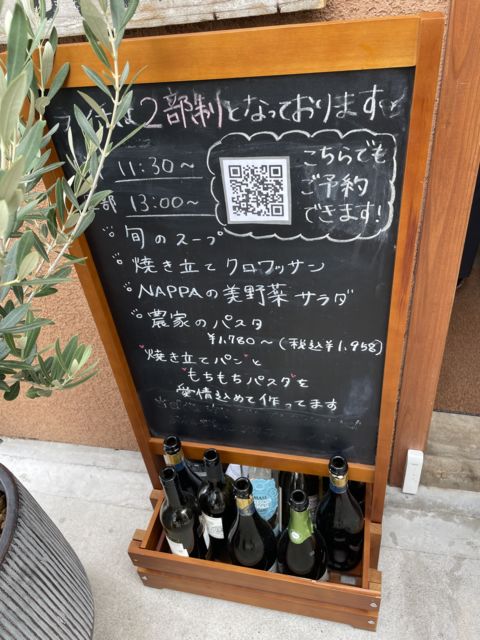 は2部制となっております
11:30〜
部 13:00〜
こちらでも
ご予約
できます!
旬のスープ
焼き立てクロワッサン
NAPPAの美野菜サラダ
農家のパスタ
¥1,780〜(税込¥1,958)
焼き立てパンと
もちもちパスタを
愛情込めて作ってます